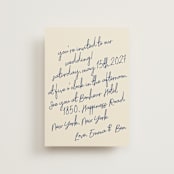 you're invited to our
wedding!
saturday, may 15th, 2027
at five o'clock in the afternoon
See you at Bonheur Hotel
1850, Happiness Road,
New York, New York
Love, Emma & Ben